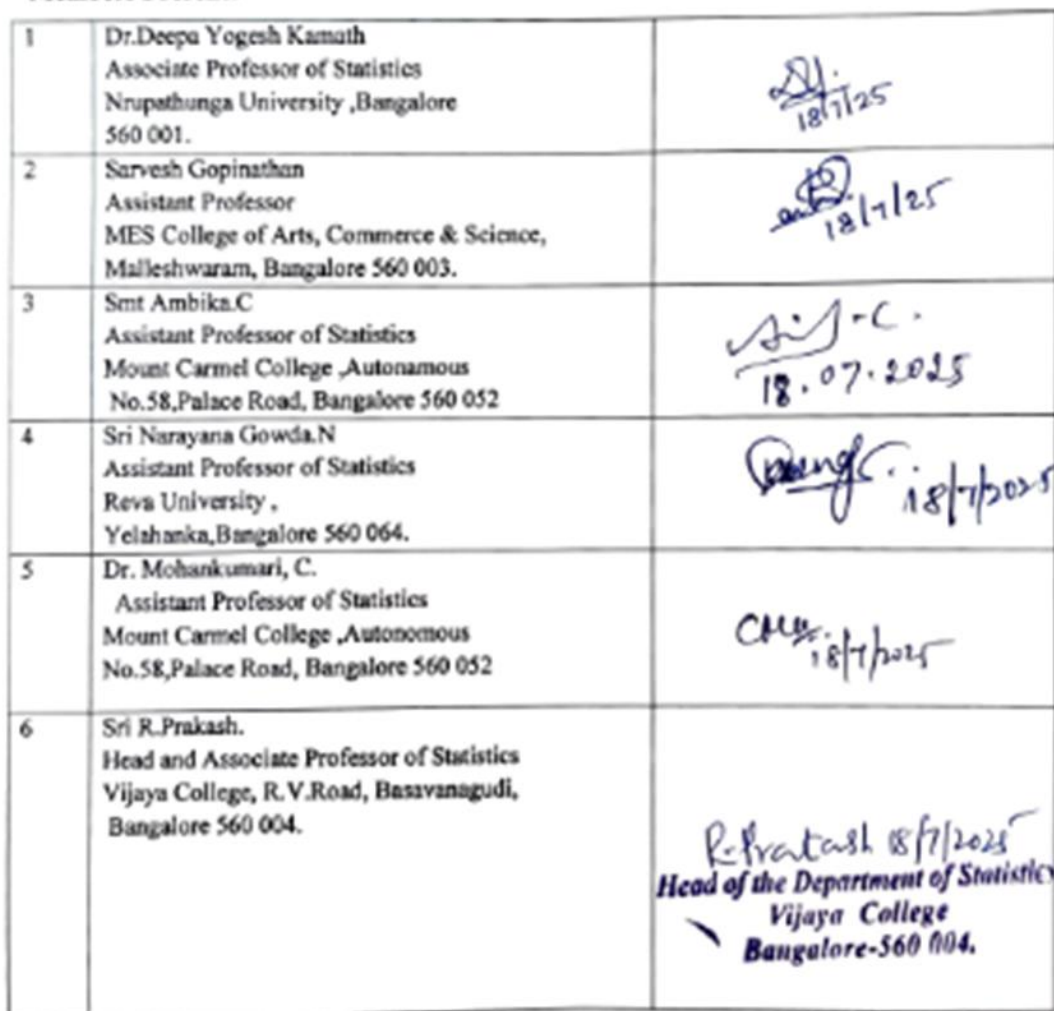 1
Dr.Deepa Yogesh Kamath
Associate Professor of Statistics
Nrupathunga University ,Bangalore
560 001.
18/7/25
2
Sarvesh Gopinathan
Assistant Professor
MES College of Arts, Commerce & Science,
Malleshwaram, Bangalore 560 003.
18/7/25
3
Smt Ambika.C
Assistant Professor of Statistics
Mount Carmel College ,Autonamous
No.58,Palace Road, Bangalore 560 052
18.07.2025
4
Sri Narayana Gowda.N
Assistant Professor of Statistics
Reva University ,
Yelahanka,Bangalore 560 064.
18/7/2025
5
Dr. Mohankumari, C.
Assistant Professor of Statistics
Mount Carmel College ,Autonomous
No.58,Palace Road, Bangalore 560 052
18/7/2025
6
Sri R.Prakash.
Head and Associate Professor of Statistics
Vijaya College, R.V.Road, Basavanagudi,
Bangalore 560 004.
R.Prakash 18/7/2025
Head of the Department of Statistics
Vijaya College
Bangalore-560 004.